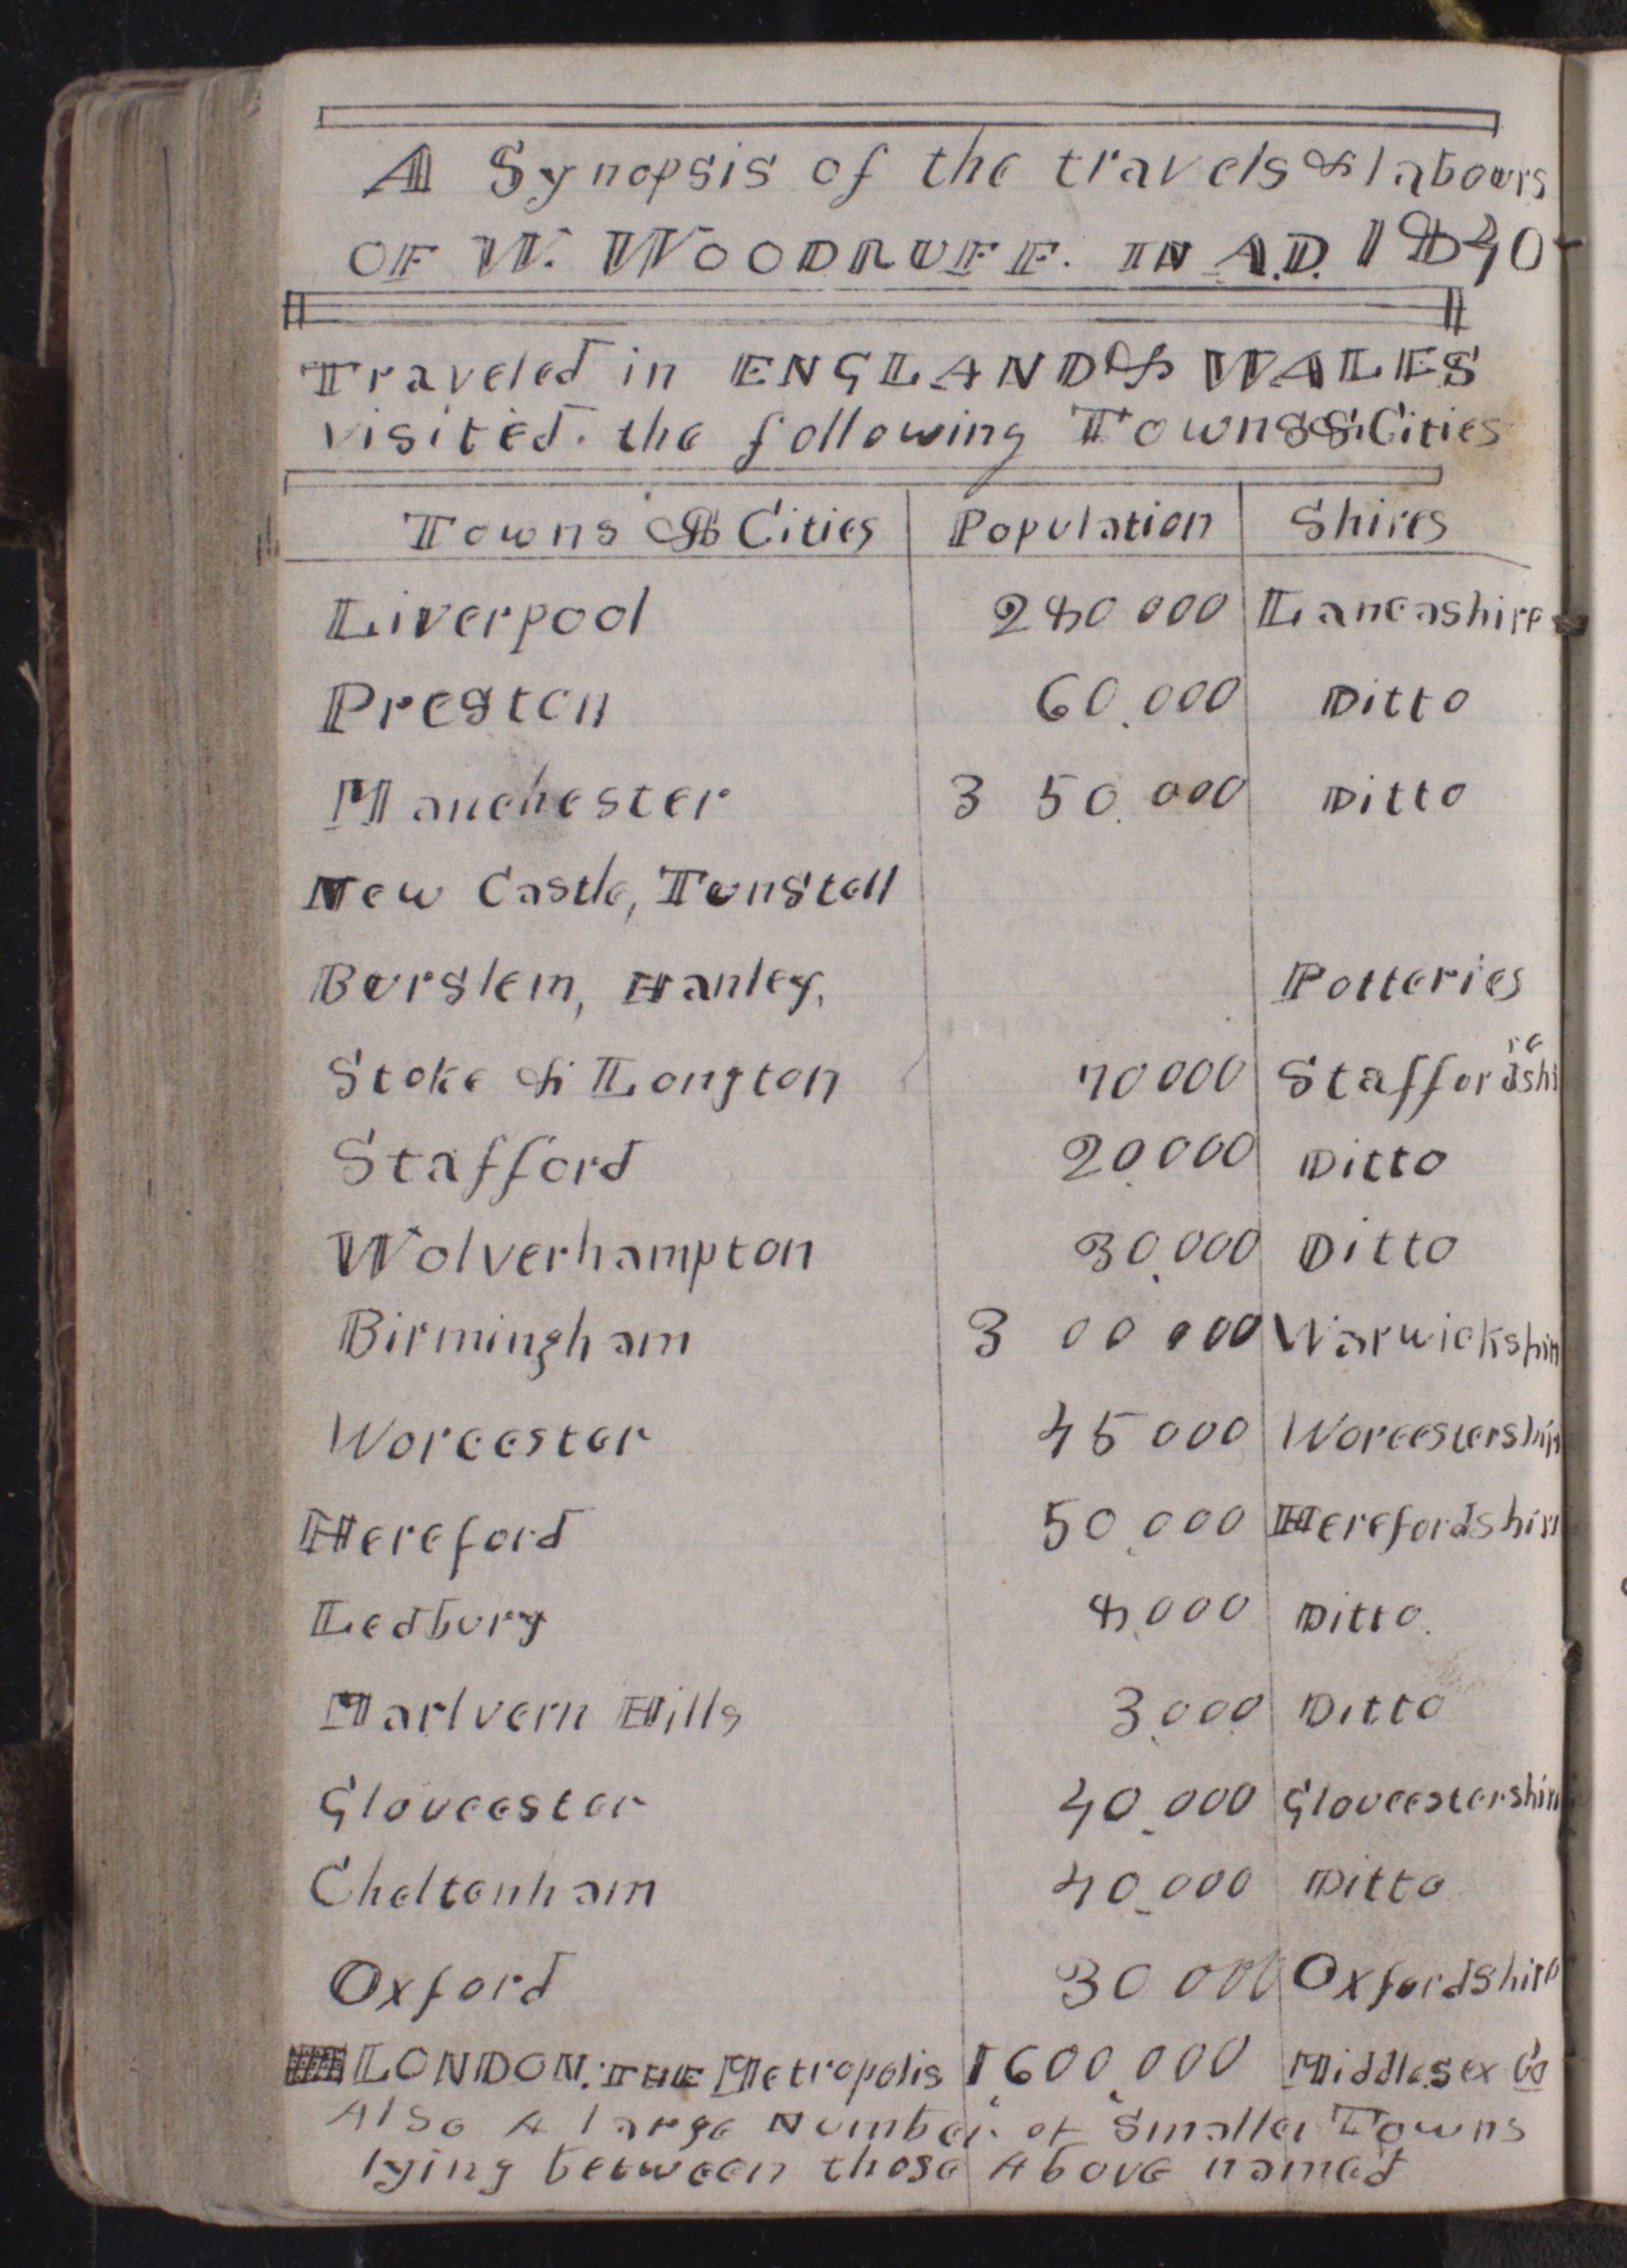 A Synopsis of the travels & labours
OF W. WOODRUFF. IN A.D. 1840
Traveled in ENGLAND & WALES
visited. the following Towns & Cities
Towns & Cities Population Shires
Liverpool 280 000 Lancashire
Preston 60.000 Ditto
Manchester 3 50.000 Ditto
New Castle, Tunstell
Burslem, Hanley, Potteries
Stoke & Longton 70 000 Staffordshire
Stafford 20.000 Ditto
Wolverhampton 30.000 Ditto
Birmingham 3 00 000 Warwickshire
Worcester 45 000 Worcestershire
Hereford 50.000 Herefordshire
Ledbury 8.000 Ditto.
Marlvern Hills 3.000 Ditto
Gloucester 40.000 Gloucestershire
Cheltenham 40.000 Ditto
Oxford 30 000 Oxfordshire
LONDON. THE Metropolis 1,600,000 Middlesex Co
Also A large Number of Smaller Towns
lying between those Above named